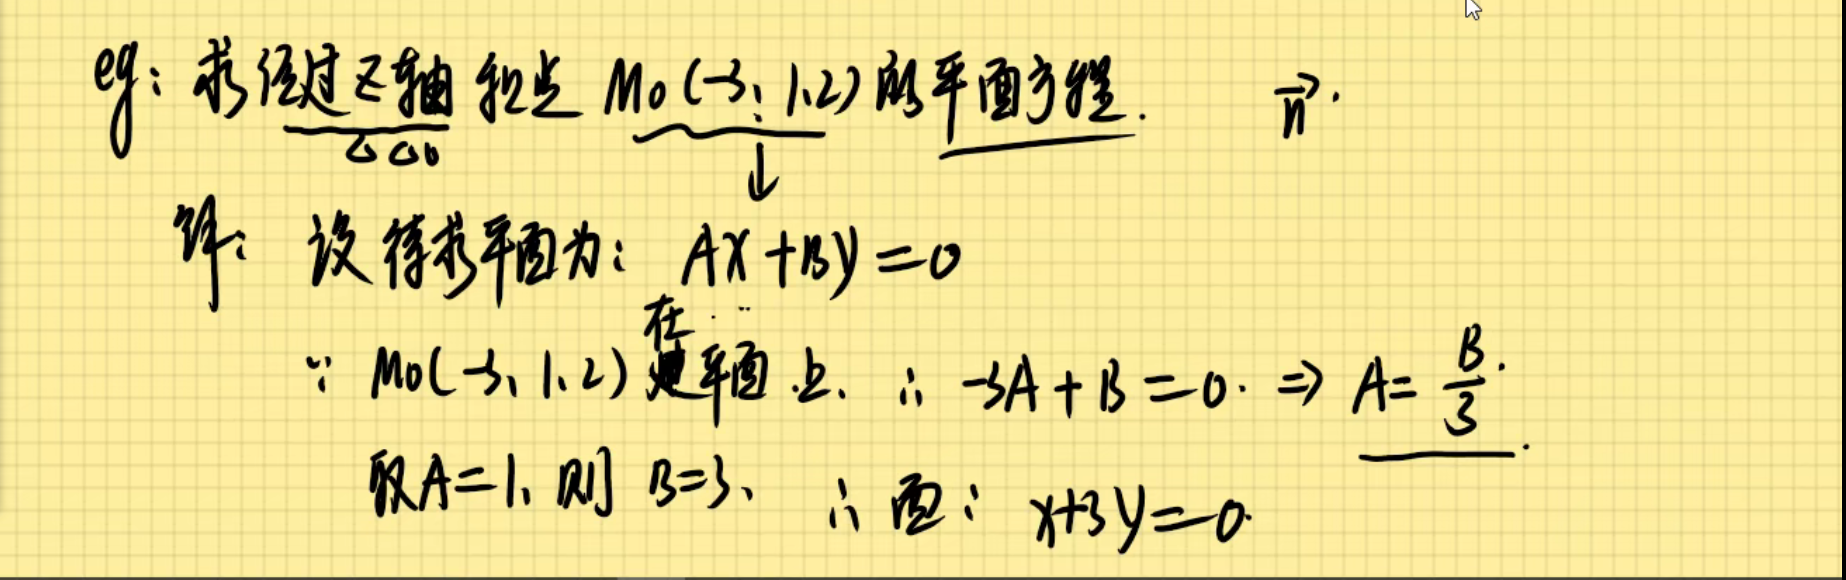 eg: 求经过Z轴和点 M₀(-3, 1, 2) 的平面方程. n⃗.
解: 设待求平面为: AX+BY=0
∵ M₀(-3, 1, 2) 在平面上. ∴ -3A+B=0. ⇒ A=B/3.
取A=1, 则 B=3、 ∴ 面: x+3y=0.